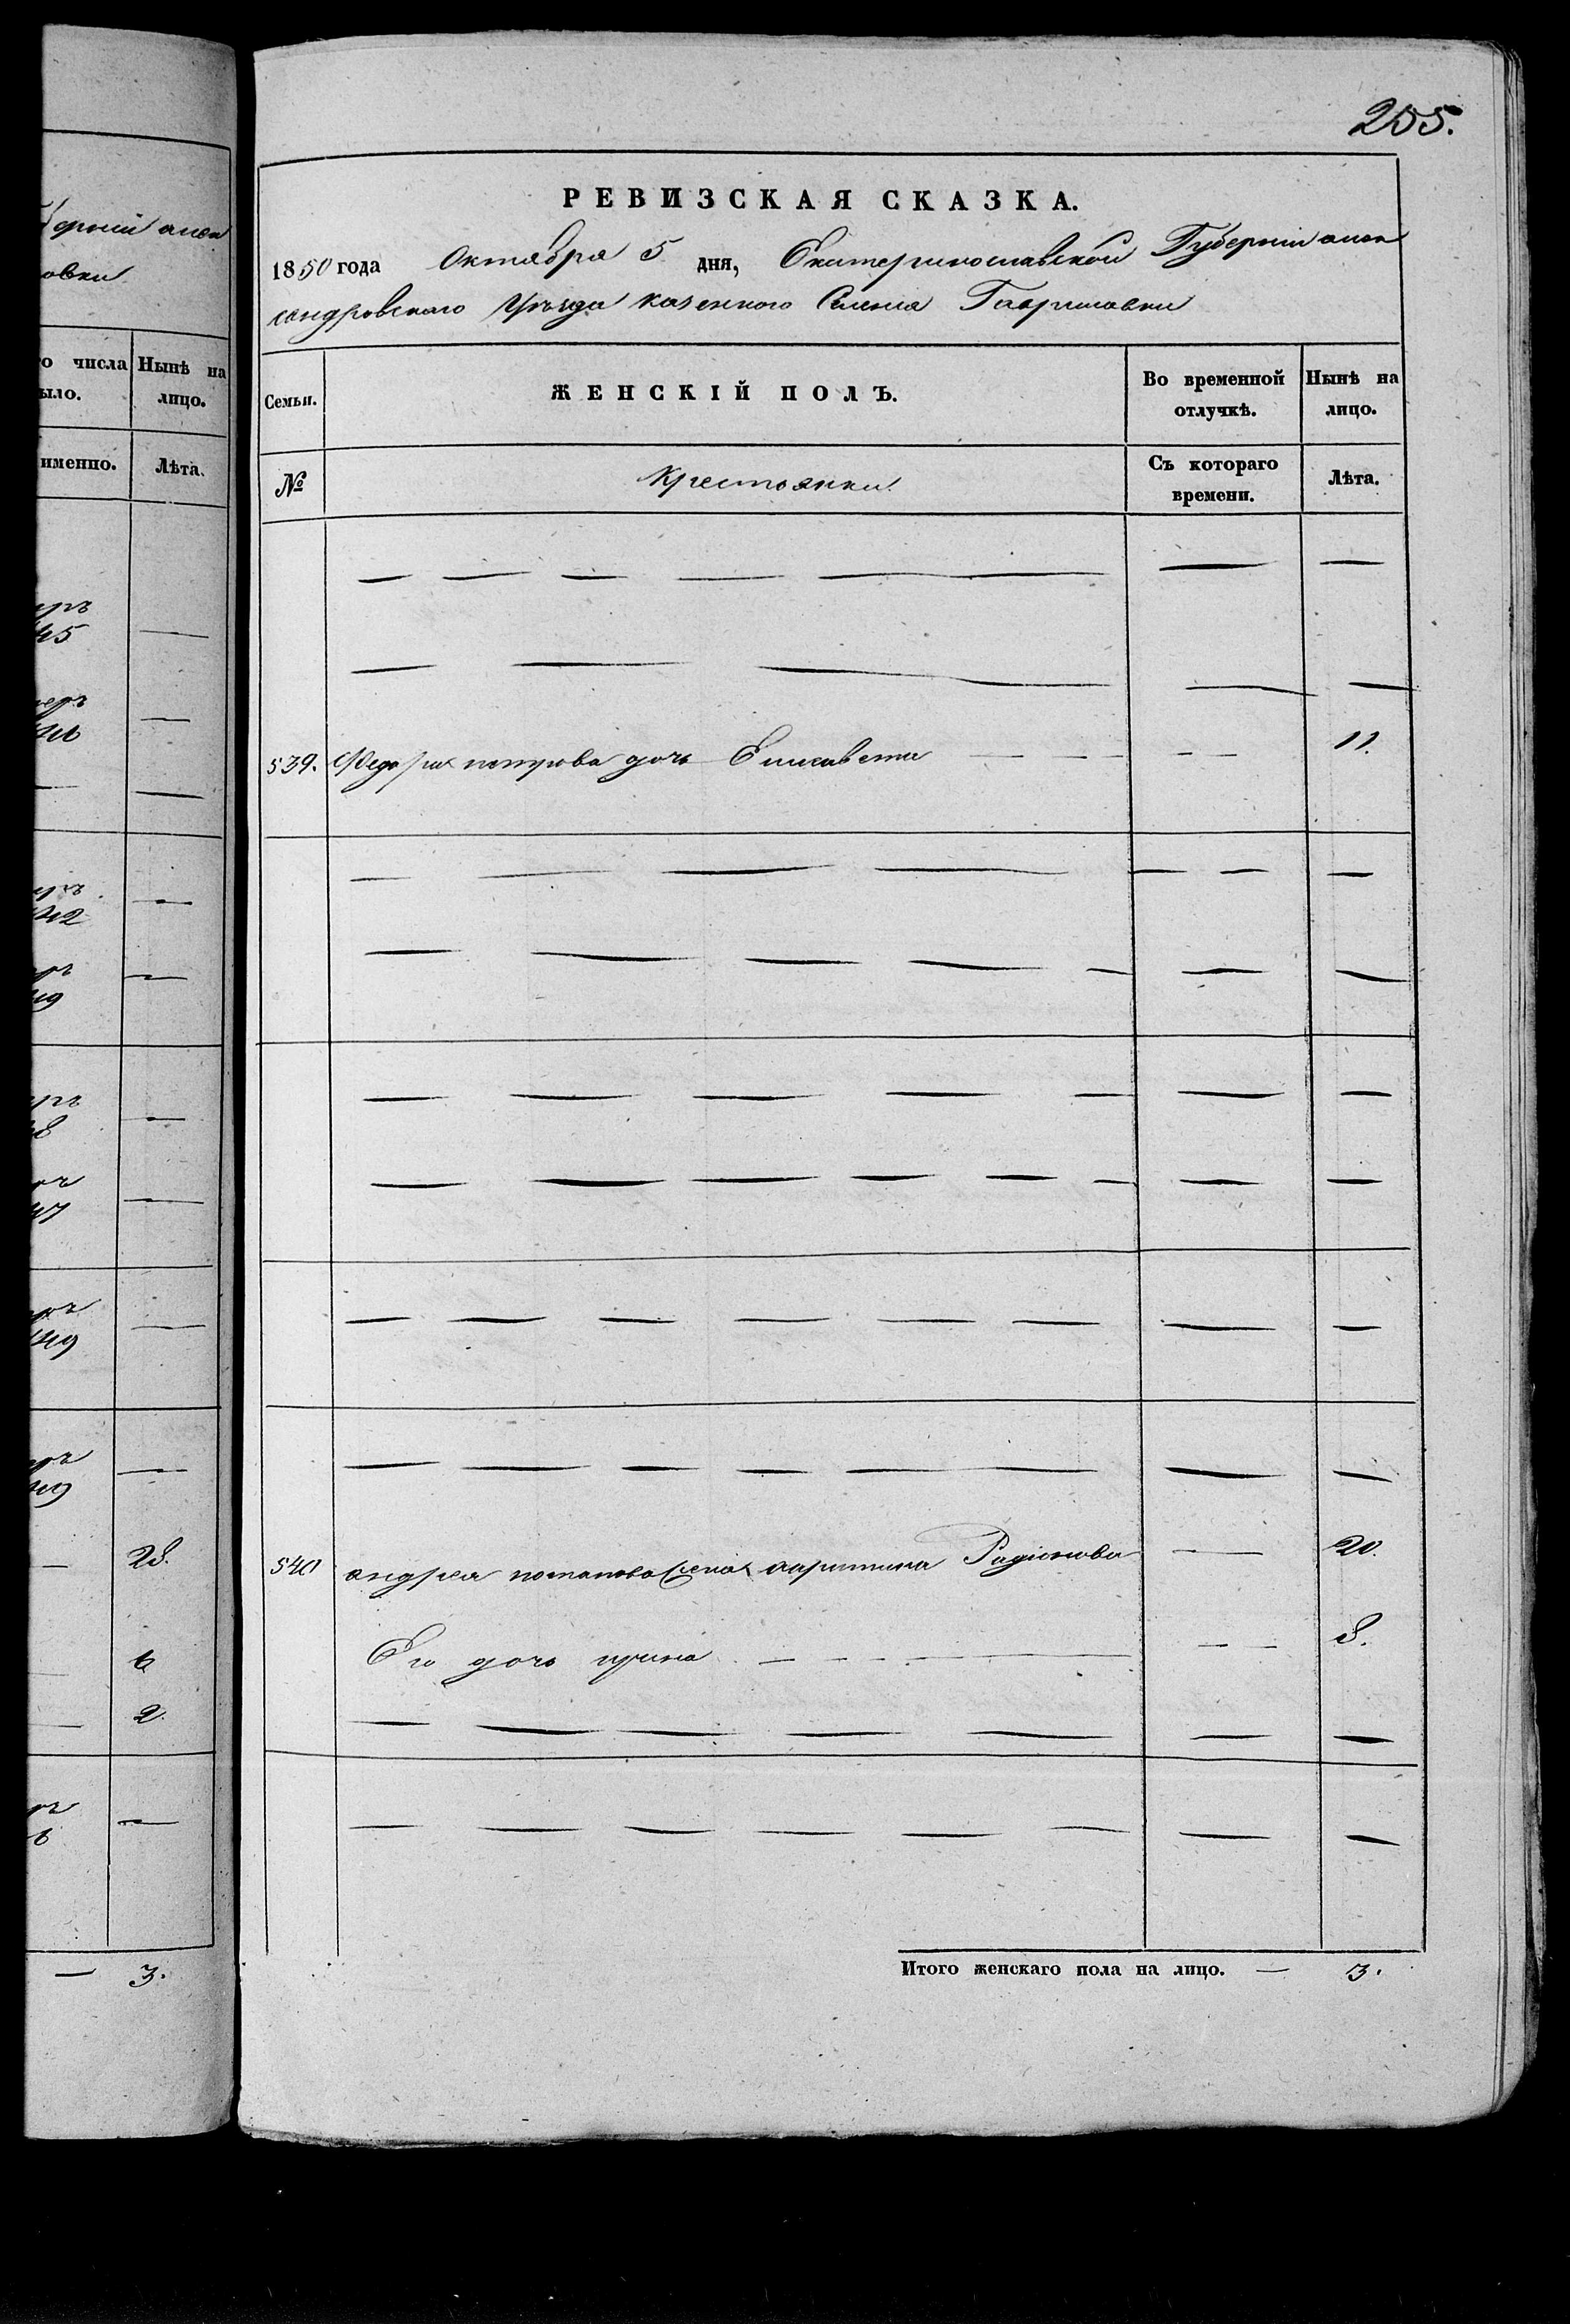 255.
РЕВИЗСКАЯ СКАЗКА.
1850 года Октября 5 дня, Екатеринославской Губерніи алек
сандровскаго Уѣзда казенного Селенія Гавриловки
Семьи.
ЖЕНСКІЙ ПОЛЪ.
Во временной отлучкѣ.
Нынѣ на лицо.
№
Крестьянки
Съ котораго времени.
Лѣта.
539. Федора петрова дочь Елисавета — — — — 11.
540 андрея потапова жена Радіонова — 20.
Его дочь ирина — — — — 8.
Итого женскаго пола на лицо. — 3.
ерніи алек
овки
числа
Нынѣ на
ыло.
лицо.
именно.
Лѣта.
45
—
28.
6
2.
— 3.